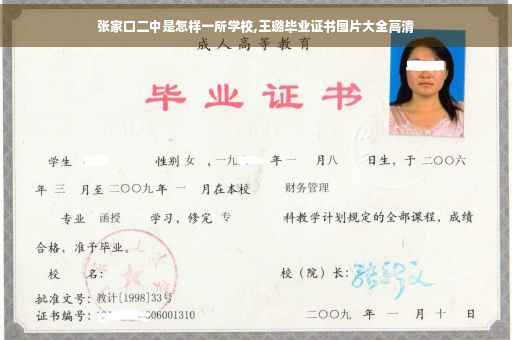 张家口二中是怎样一所学校,王璐毕业证书图片大全高清
成人高等教育
毕业证书
学生 性别 女 ,一九 年 一 月八 日生，于 二〇〇六
年 三 月至 二〇〇九年 一 月在本校 财务管理
专业 函授 学习，修完 专 科教学计划规定的全部课程，成绩
合格，准予毕业。
校 名： 校（院）长：
批准文号：教计[1998]33号
证书编号： 06001310 二〇〇九 年 一 月 十 日